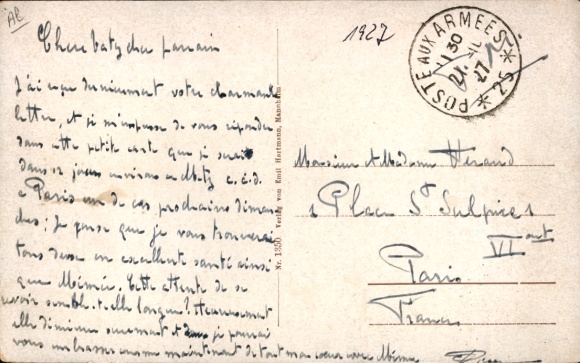 AC
1927
Chère Vatz cher parrain
J'ai reçu dernièrement votre charmante
lettre, et si m'expose de vous répondre
dans cette petite carte que je serai
dans 12 jours environ à Metz c.à.d.
à Paris un de ces prochains diman
ches; Je pense que je vous trouverai
tous deux en excellente santé ainsi
que Mémée. Cette attente de se
revoir semble-t-elle longue? Heureusement
elle diminue surement et je pourrai
vous embrasser comme maintenant de tout mon cœur avec Mémée
Nr. 1350. Verlag von Emil Hartmann, Mannheim
POSTE AUX ARMEES
* 25 *
11 30
21.
27
Monsieur et Madame Héraud
1 Place St Sulpice 1
VI
Paris
France